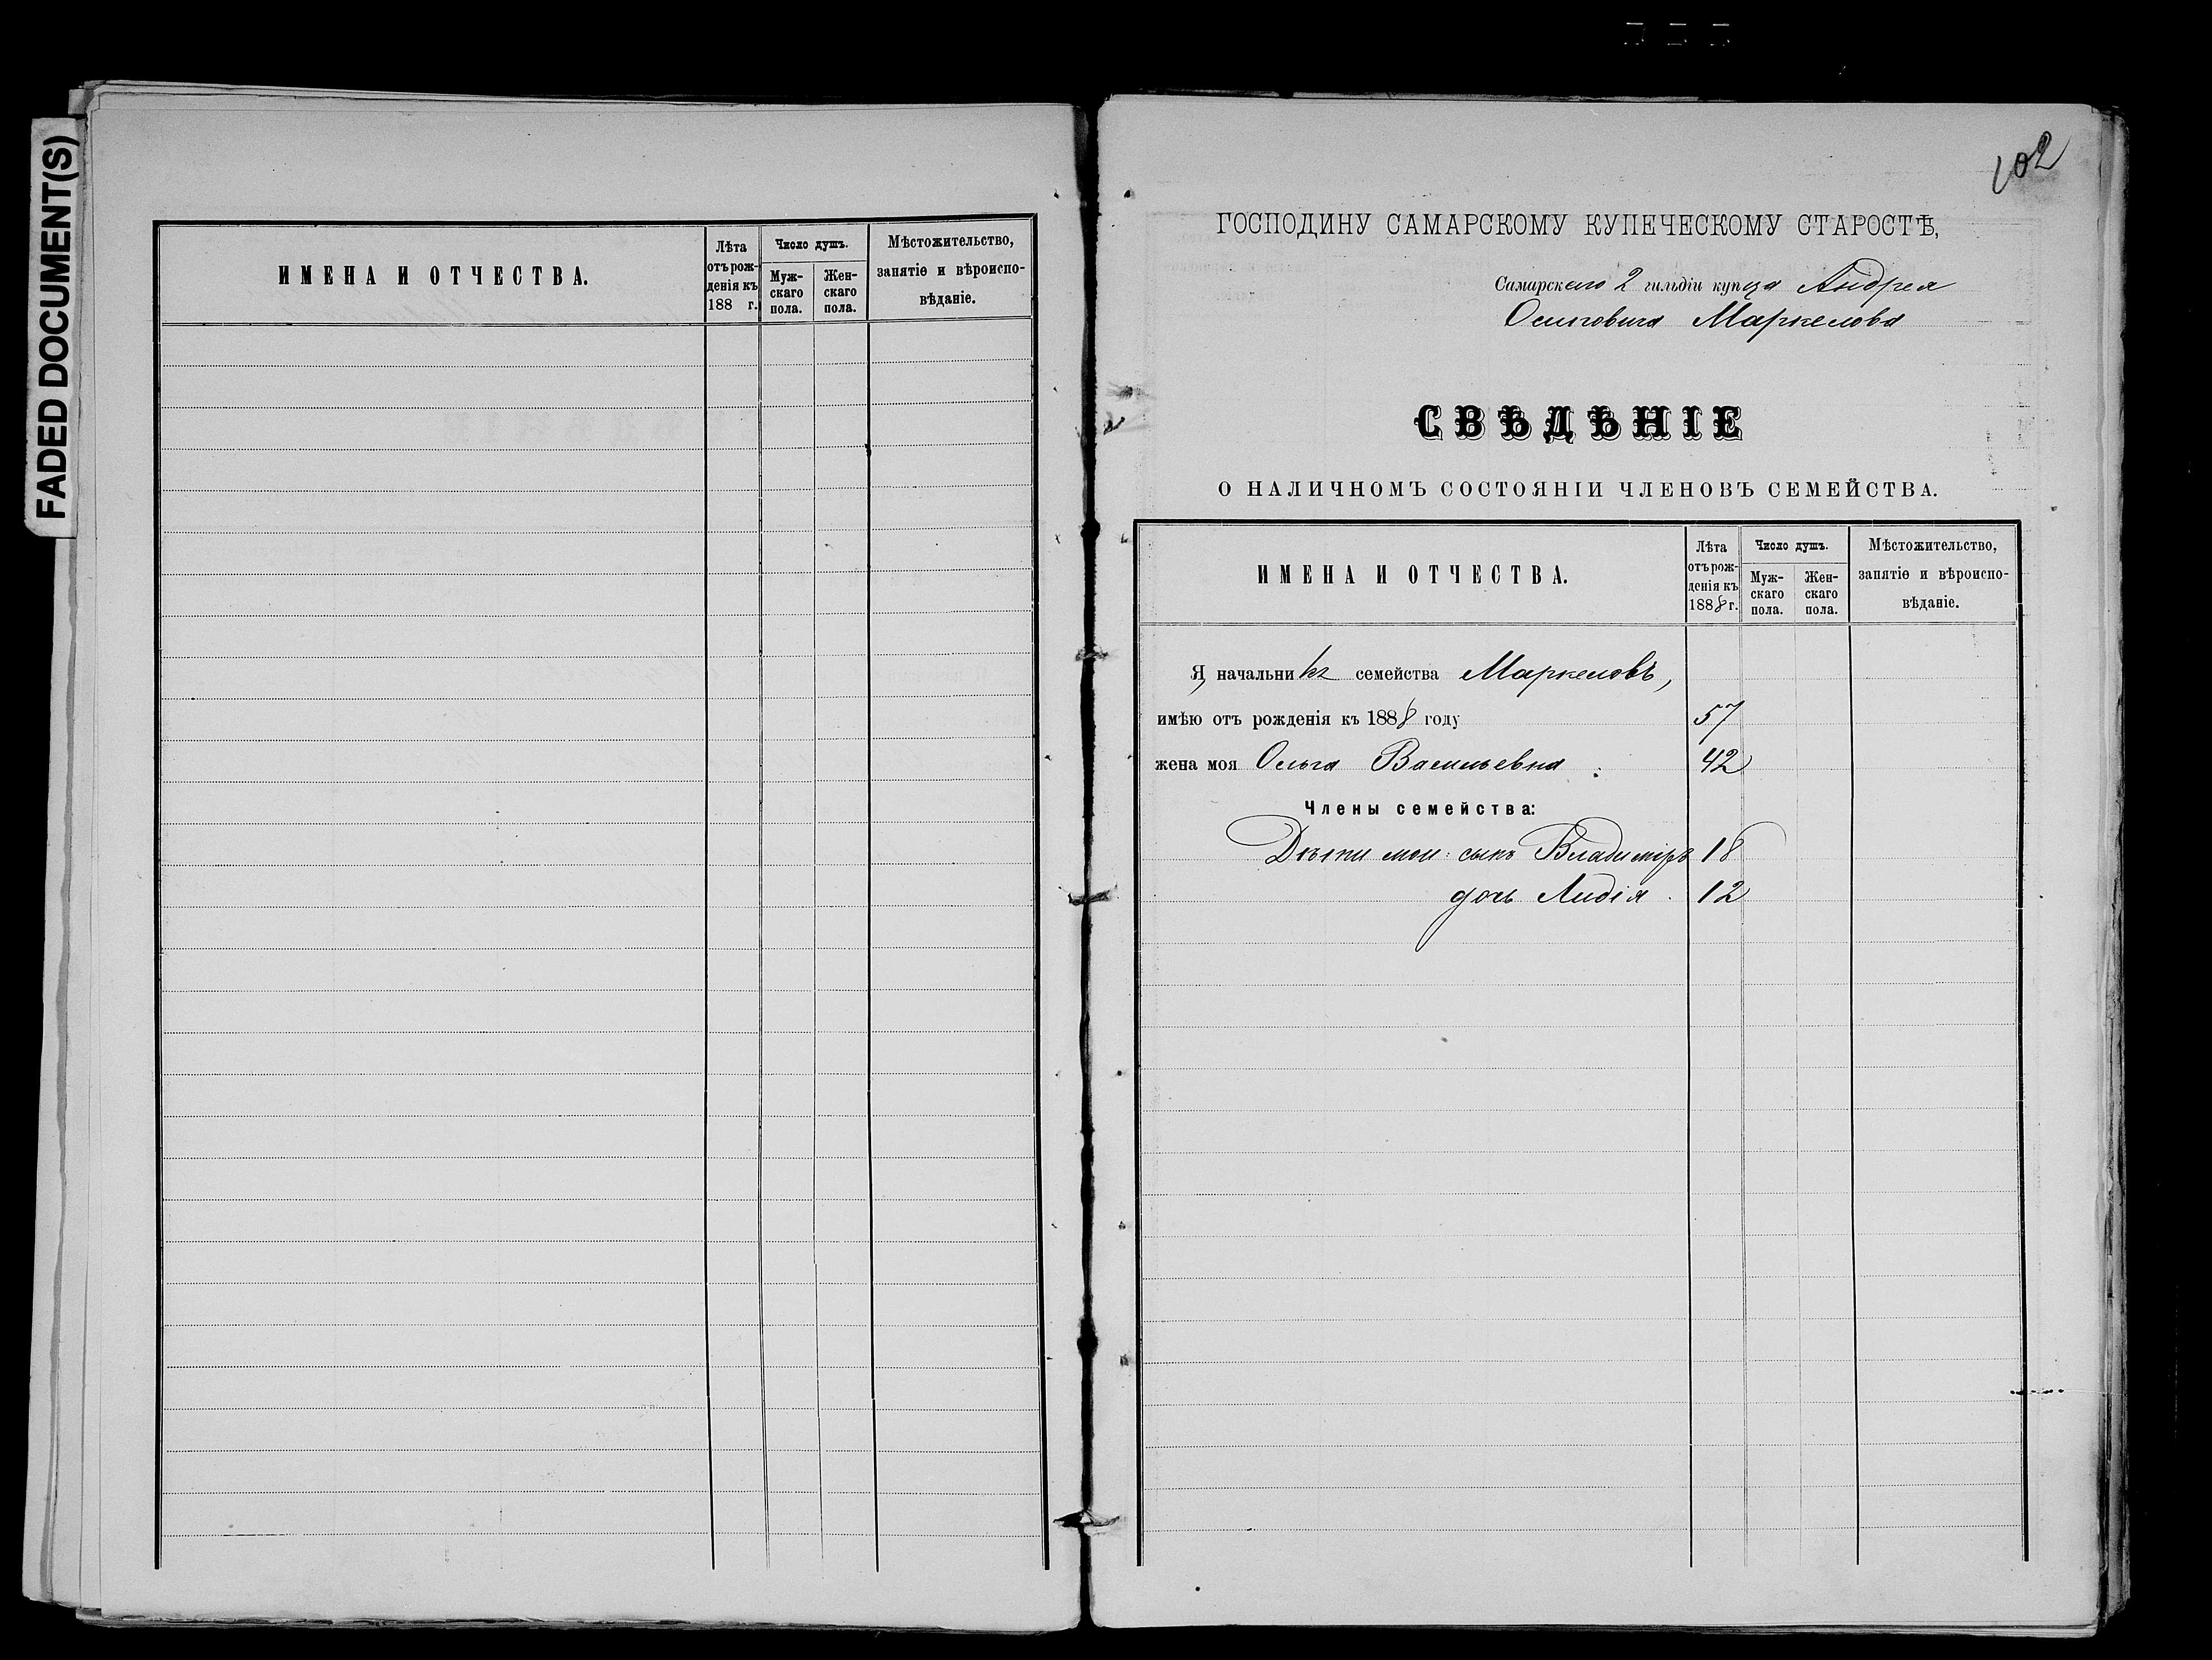 FADED DOCUMENT(S)
ИМЕНА И ОТЧЕСТВА.
Лѣта
отъ рож-
денія къ
188 г.
Число душъ.
Муж-
скаго
пола.
Жен-
скаго
пола.
Мѣстожительство,
занятіе и вѣроиспо-
вѣданіе.
102
ГОСПОДИНУ САМАРСКОМУ КУПЕЧЕСКОМУ СТАРОСТѢ,
Самарскаго 2 гильдіи купца Андрея
Осиповича Маркелова
СВѢДѢНІЕ
О НАЛИЧНОМЪ СОСТОЯНІИ ЧЛЕНОВЪ СЕМЕЙСТВА.
ИМЕНА И ОТЧЕСТВА.
Лѣта
отъ рож-
денія къ
1888 г.
Число душъ.
Муж-
скаго
пола.
Жен-
скаго
пола.
Мѣстожительство,
занятіе и вѣроиспо-
вѣданіе.
Я, начальникъ семейства Маркеловъ,
имѣю отъ рожденія къ 1888 году 57
жена моя Ольга Васильевна 42
Члены семейства:
Дѣти мои: сынъ Владиміръ 18
дочь Лидія 12